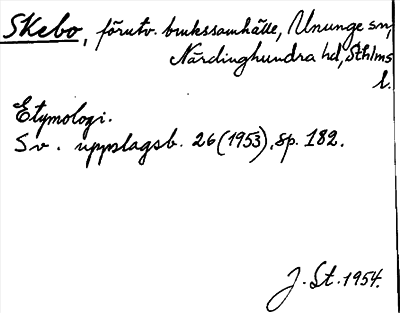 Skebo, förutv. brukssamhälle, Ununge sn,
Närdinghundra hd, Sthlms
l.
Etymologi.
Sv. uppslagsb. 26 (1953), sp. 182.
J. St. 1954.